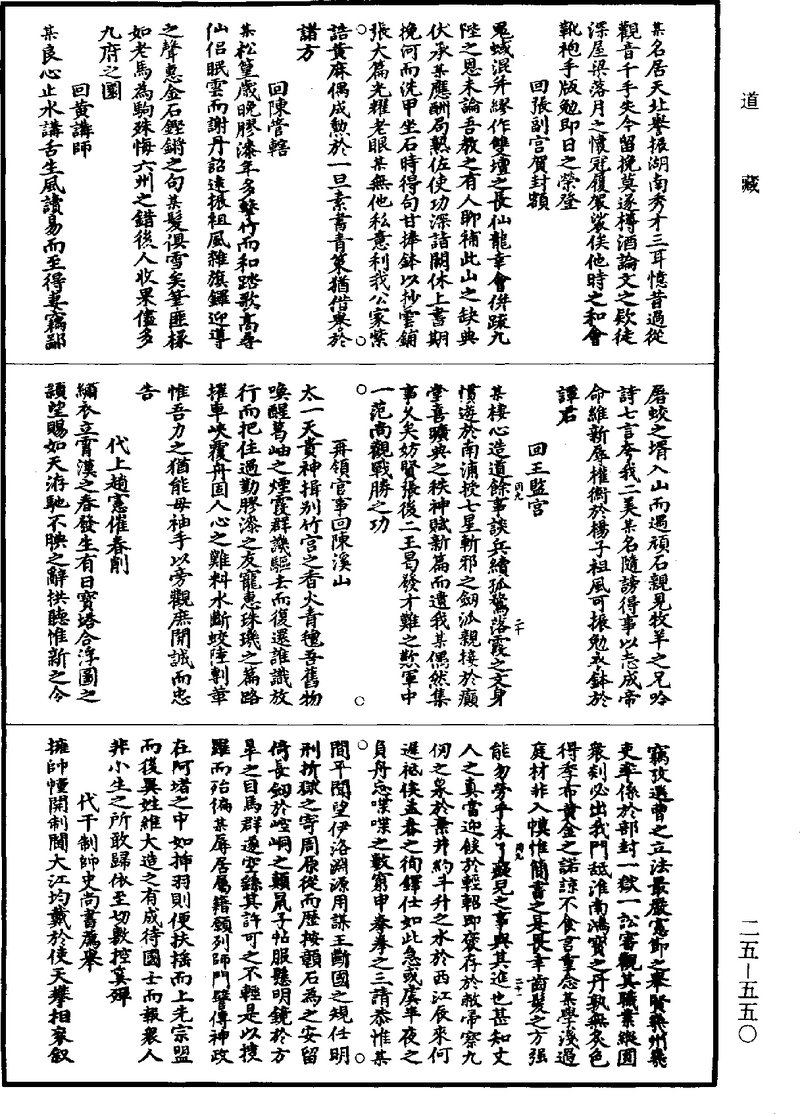 道藏
某名居天北譽振湖南秀才三耳憶昔過從
觀音千手失今留挽莫遂樽酒論文之欵徒
深屋梁落月之懷冠履袈裟俟他時之和會
靴袍手版勉即日之榮登
回張副宮賀封額
冕絨混丹緣作雙壇之長仙龍章會併疏九
陛之恩未論吾教之有人聊補此山之缺典
伏承某應酬局熟佐使功深詣闕休上書期
挽河而洗甲坐石時得句甘捧鉢以抄雲鋪
張大篇光耀老眼某無他私意利我公家紫
誥黃麻偶成勲於一旦素書青策猶借畧於
諸方
回陳管轄
某松篁歲晚膠漆年多擊竹而和踏歌高尋
仙侶眠雲而謝丹詔遠振祖風雜旗鑼迎導
之聲惠金石鏗鏘之句某髮俱雪矣筆匪椽
如老馬為駒殊悔六州之錯後人收果儘多
九府之圜
回黃講師
某良心止水講舌生風讀易而至得妻竊鄙
屠蛟之壻入山而遇頑石親見牧羊之兄吟
詩七言夸我二美某名隨謗得事以志成帝
命維新辱權衡於楊子祖風可振勉衣鉢於
譚君
回王監宮
某棲心造道餘事談兵續孤鶩落霞之文身
慣遊於南浦授七星斬邪之劒派親接於癲
堂喜曠典之秩神賦新篇而遺我某偶然集
事久矣妨賢張後二王曷發才難之歎軍中
一范尚觀戰勝之功
再領官事回陳溪山
太一天貴神揖別竹宮之香火青氊吾舊物
喚醒葛岫之煙霞群譏驅去而復還誰識放
行而把住過勤膠漆之友寵惠珠璣之篇路
摧車峽覆舟固人心之難料水斷蛟陸剸犀
惟吾力之猶能毋袖手以旁觀庶開誠而忠
告
代上趙憲催春削
繡衣立霄漢之春發生有日寶塔合浮圖之
頴望賜如天游馳不腆之辭拱聽惟新之令
竊攷選曹之立法最嚴憲節之舉賢幾州幾
吏牽係於部封一獄一訟審觀其職業縱圓
衆刻必出我門㧞淮南鴻寶之丹孰無炙色
得季布黃金之諾諒不食言重念某學淺過
庭材非入幙惟簡書之是畏幸齒髮之方强
能勿勞乎未了癡兒之事與其進也甚知丈
人之真當迎餞於輕軺即褒存於敝帚察九
仞之泉於棄井約斗升之水於西江辰來何
遲祗俟孟春之徇鐸仕如此急或虞半夜之
負舟忘喋喋之數窮申拳拳之三請恭惟某
間平聞望伊洛淵源用謙王斷國之規任明
刑折獄之寄周原從而歷按顧石為之安留
倚長劒於崆峒之顛鼠子帖服懸明鏡於方
皐之目馬群遂空繇其許可之不輕是以搜
羅而殆徧某辱居屬籍額列師門壁傳神政
在阿堵之中如挿羽則便扶搖而上先宗盟
而後異姓維大造之有成待國士而報衆人
非小生之所敢歸依至切敷控莫殫
代干制帥史尚書薦舉
擁帥幢開制閫大江均戴於使天攀相袞叙
二五—五五〇